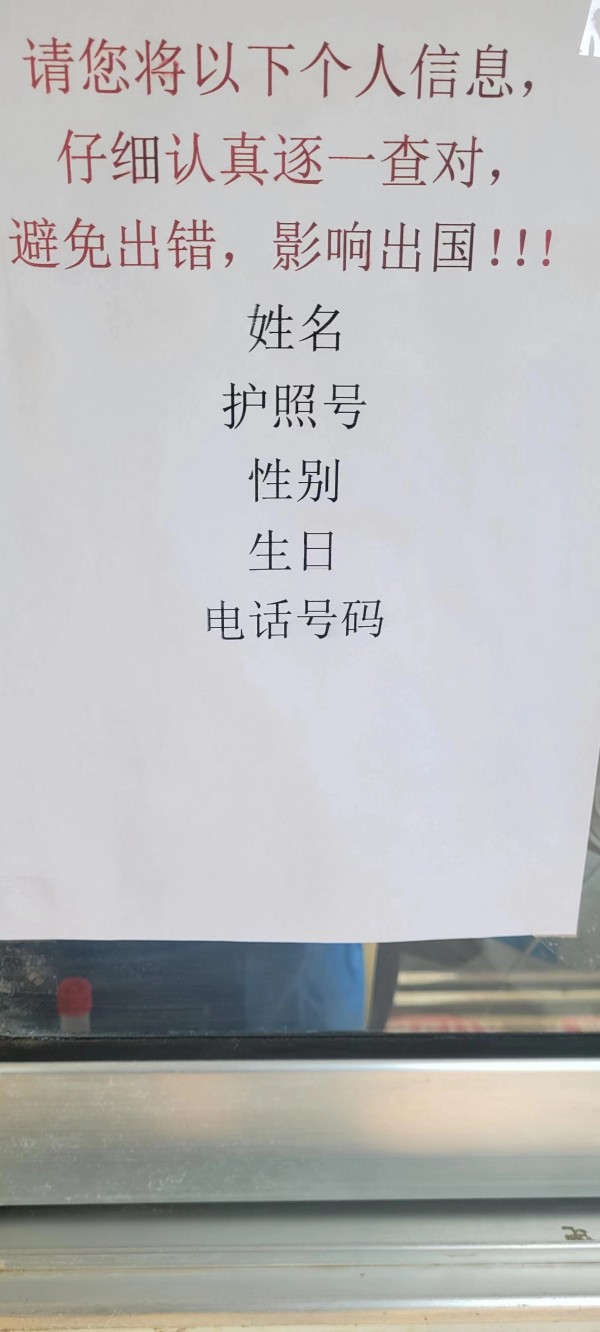 请您将以下个人信息，
仔细认真逐一查对，
避免出错，影响出国！！！
姓名
护照号
性别
生日
电话号码